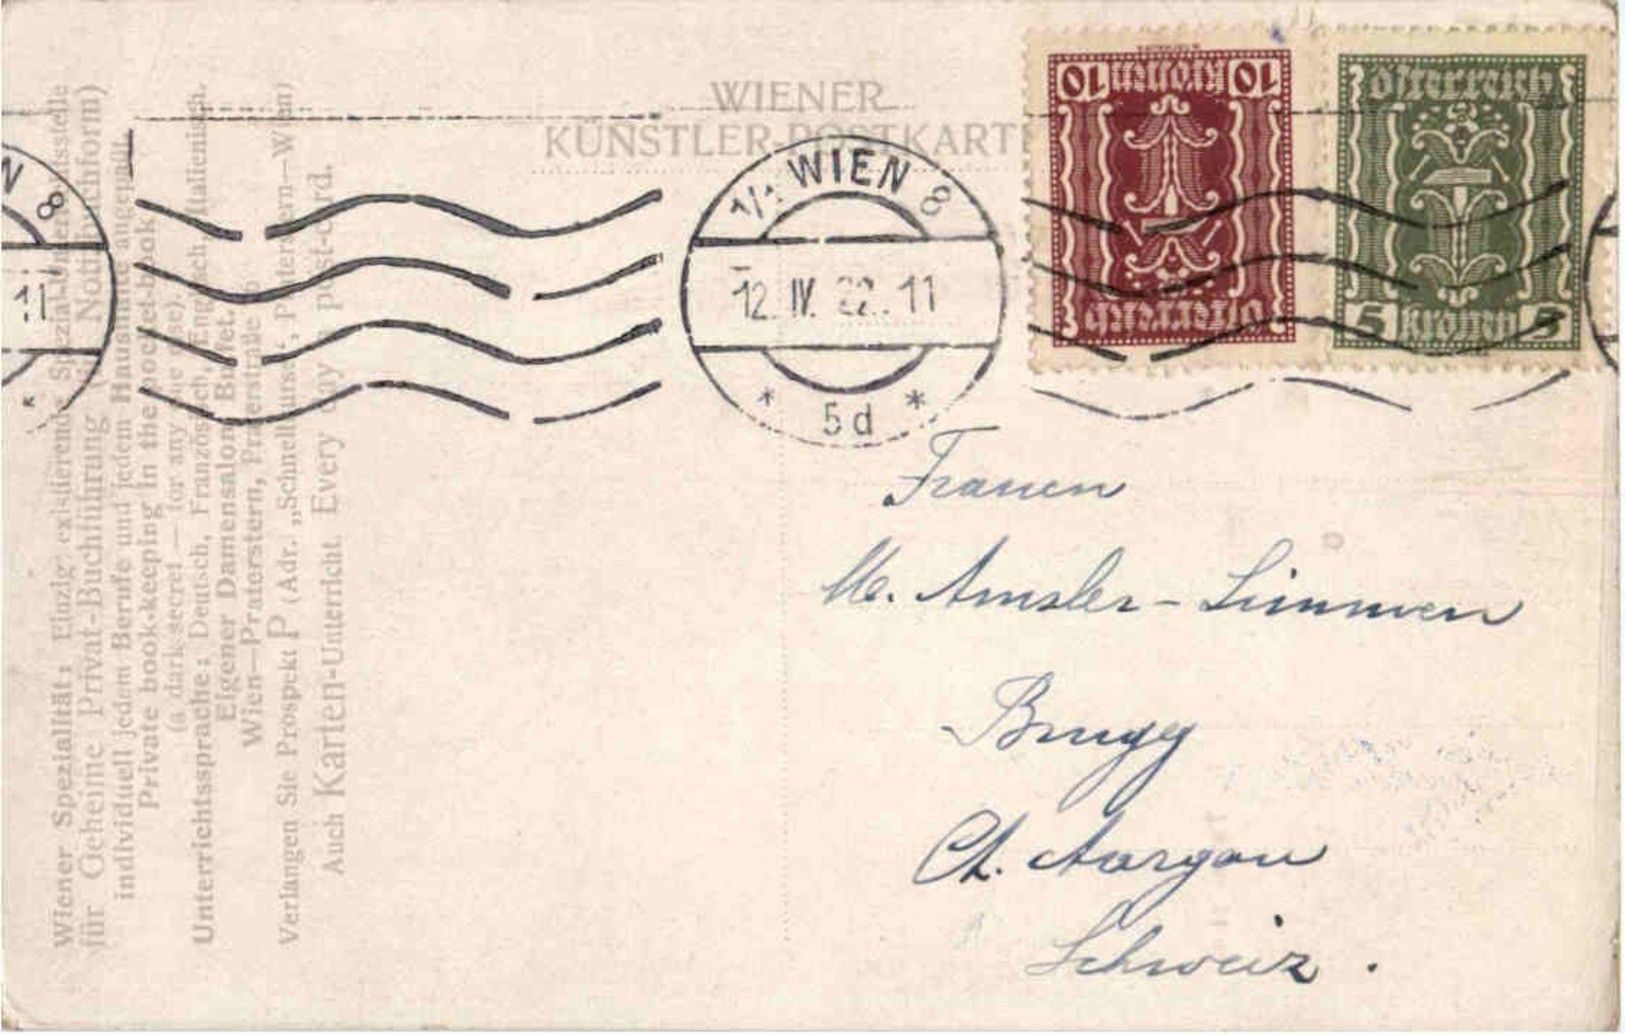 WIENER
KÜNSTLER-POSTKARTE
10 kronen 10
Österreich
Österreich
5 kronen 5
1/1 WIEN 8
12. IV. 22. 11
* 5d *
N 8
11
Frauen
M. Amsler-Simmen
Brugg
Ct. Aargau
Schweiz.
Wiener Spezialität: Einzig existierende Spezial-
für Geheime Privat-Buchführung (in Notizbuchform)
individuell jedem Berufe und jedem Haushalte angepaßt.
Private book-keeping in the pocket-book
(a dark secret — for any one use).
Unterrichtssprache: Deutsch, Französisch, Englisch, Italienisch.
Eigener Damensalon. Brevet.
Wien—Praterstern, Praterstraße
Verlangen Sie Prospekt P (Adr. „Schnellkunst“, Praterstern—Wien)
Auch Karten-Unterricht. Every day a post-card.